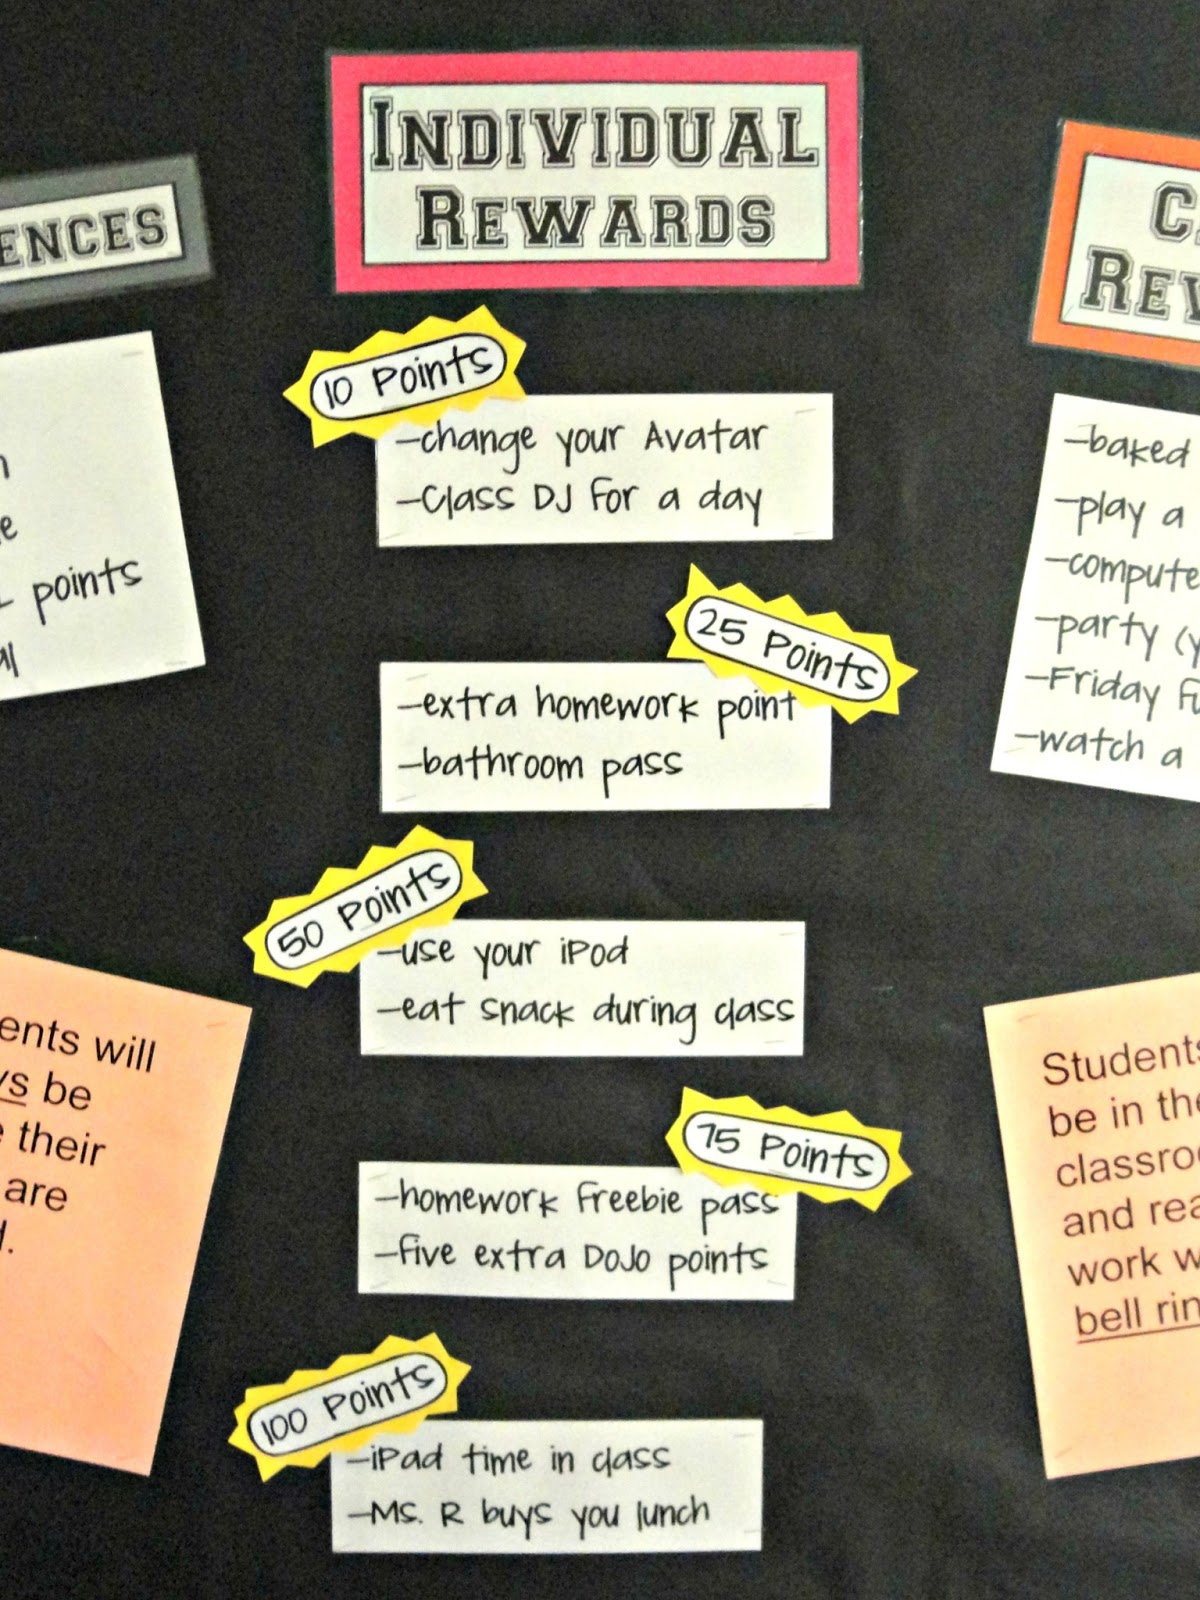 INDIVIDUAL
REWARDS
10 Points
-change your Avatar
-Class DJ for a day
25 Points
-extra homework point
-bathroom pass
50 Points
-use your iPod
-eat snack during class
75 Points
-homework Freebie pass
-five extra DoJo points
100 Points
-iPad time in class
-Ms. R buys you lunch
ENCES
points
ents will
ys be
their
are
-baked
-play a
-compute
-party (y
-Friday fu
-watch a
Students
be in the
classroo
and rea
work w
bell rin